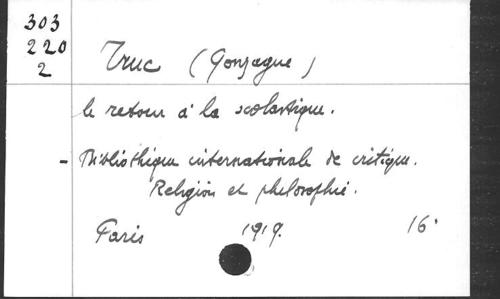 303
220
2
Truc (Gonzague)
le retour à la scolastique.
- Bibliothèque internationale de critique.
Religion et philosophie.
Paris 1919. 16°